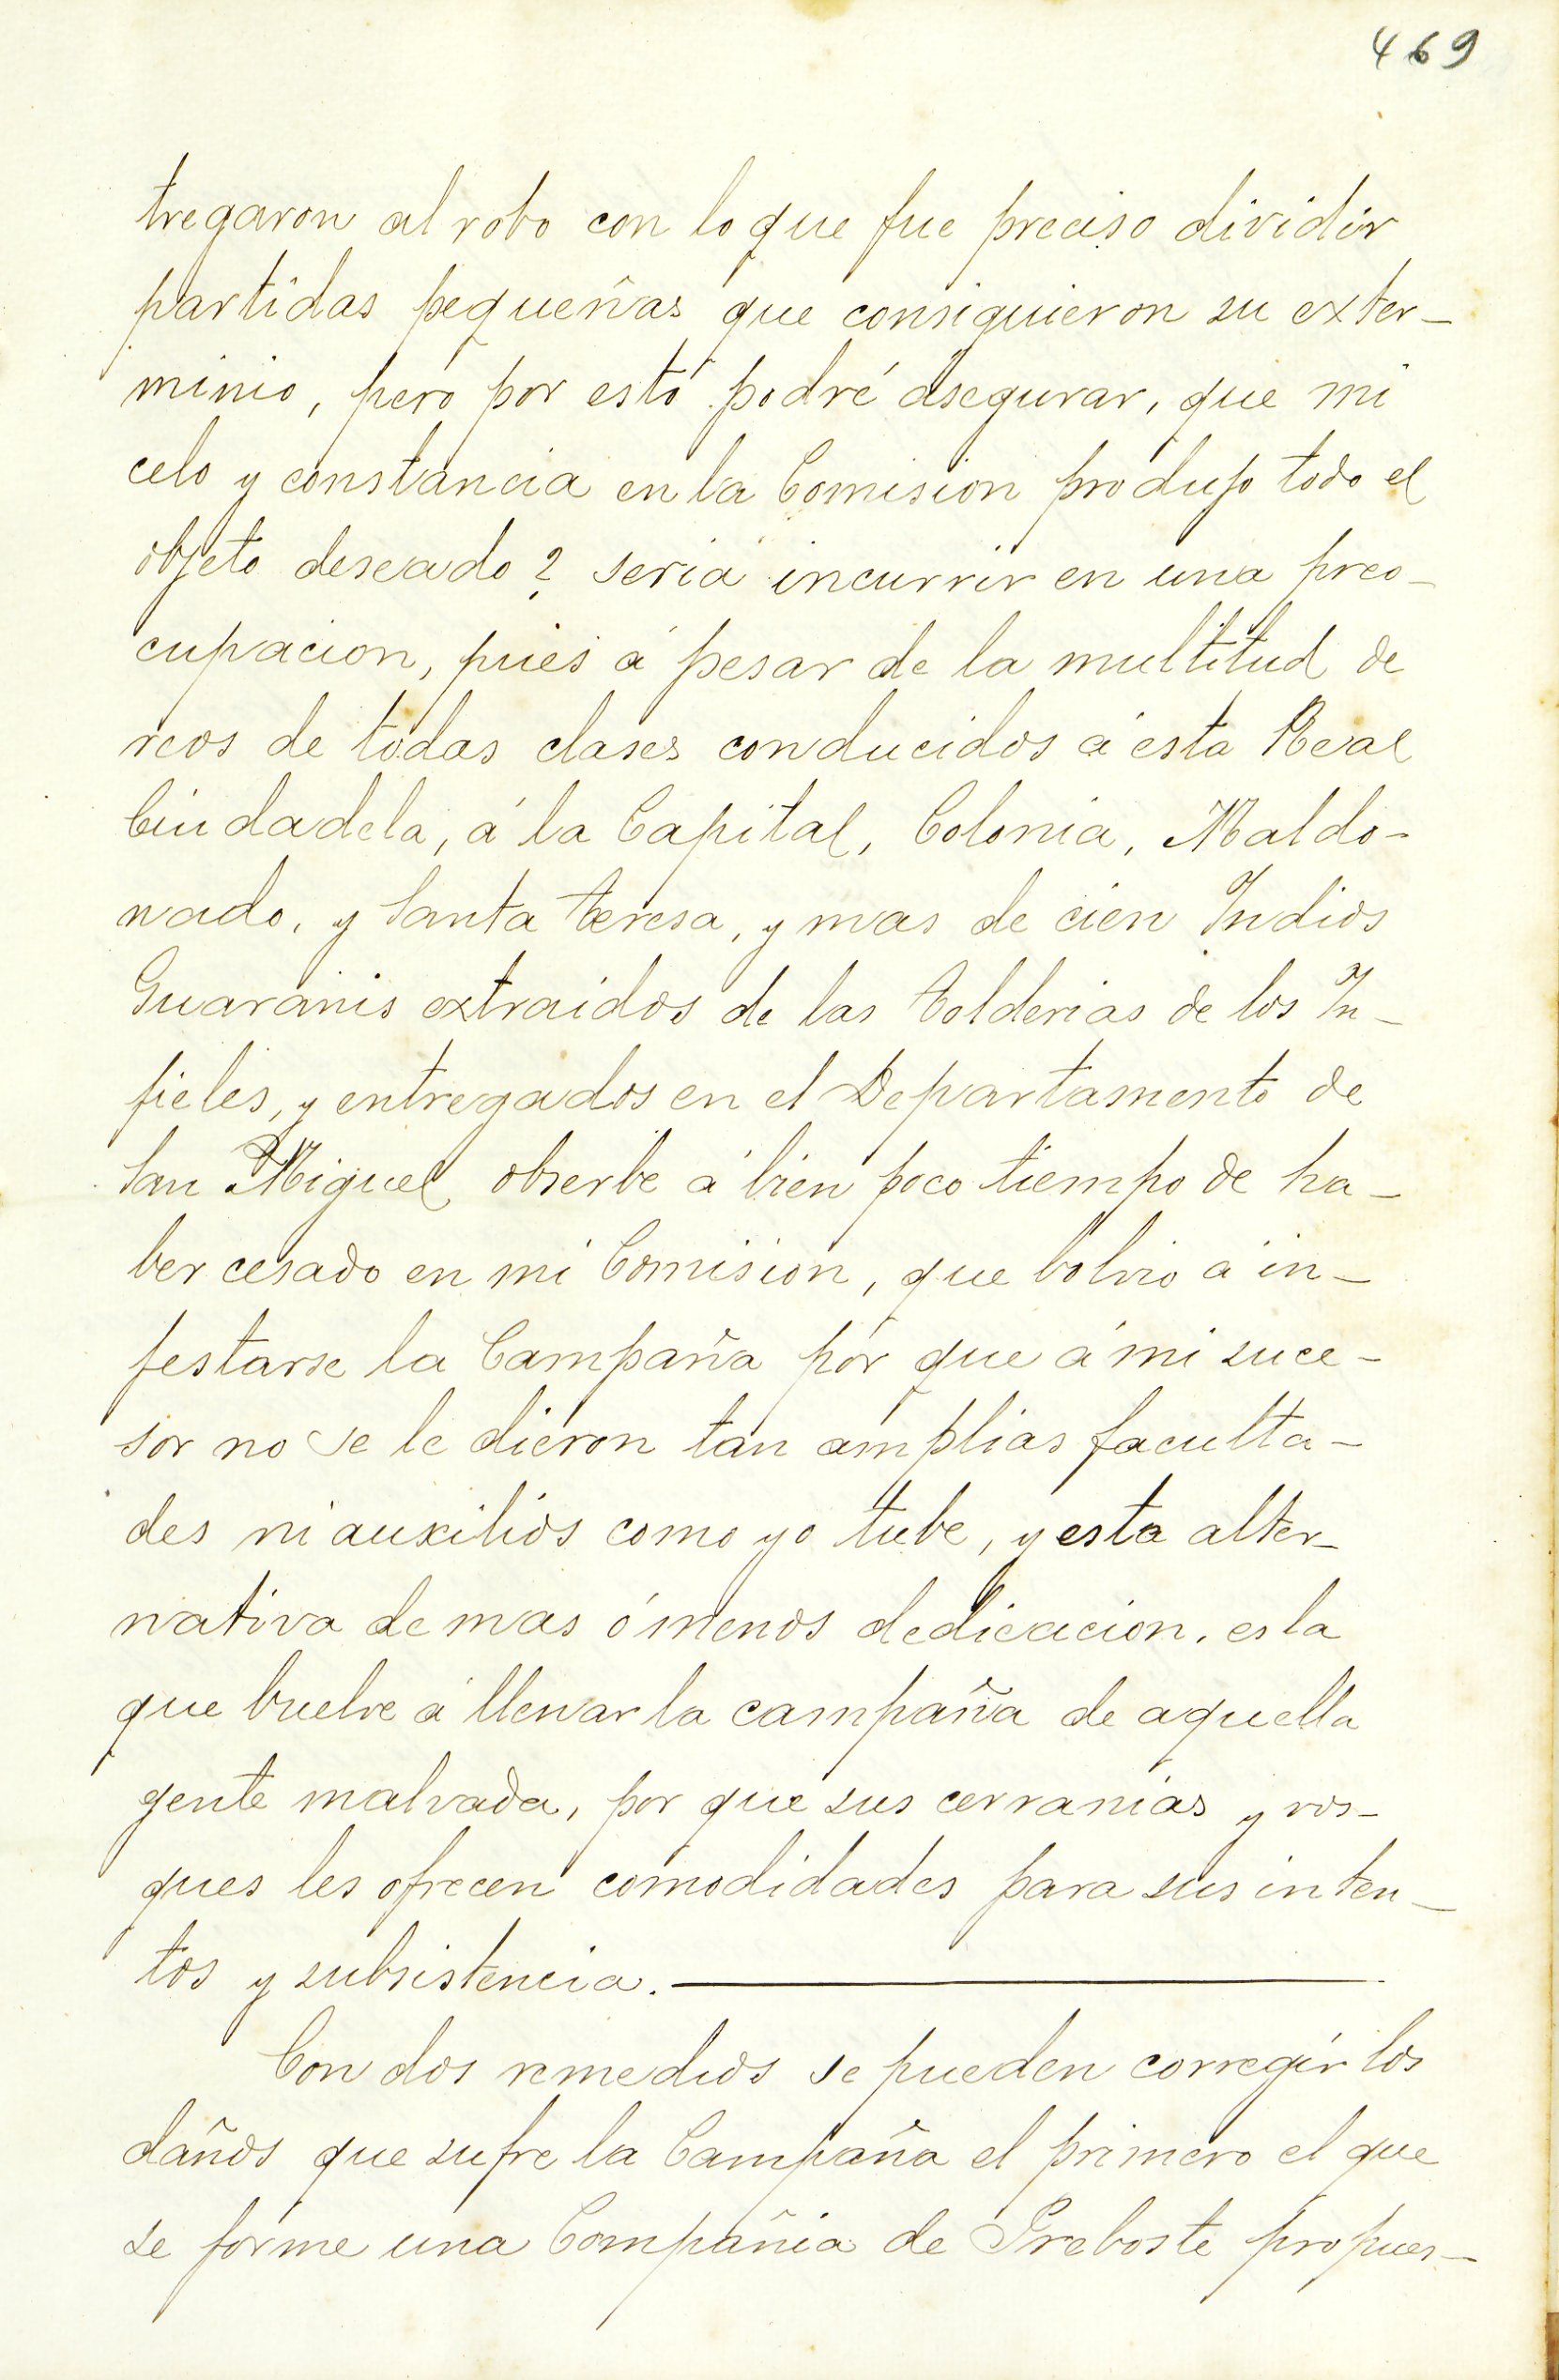 469
tregaron al robo con lo que fue preciso dividir
partidas pequeñas que consiguieron su exter-
minio, pero por esto podré asegurar, que mi
celo y constancia en la Comision produjo todo el
objeto deseado? seria incurrir en una preo-
cupacion, pues á pesar de la multitud de
reos de todas clases conducidos á esta Real
Ciudadela, á la Capital, Colonia, Maldo-
nado, y Santa Teresa, y mas de cien Indios
Guaranis extraidos de las tolderias de los In-
fieles, y entregados en el Departamento de
San Miguel obserbe á bien poco tiempo de ha-
ber cesado en mi Comision, que bolvio á in-
festarse la Campaña por que á mi suce-
sor no se le dieron tan amplias faculta-
des ni auxilios como yo tube, y esta alter-
nativa de mas ó menos dedicacion, es la
que buelve á llenar la campaña de aquella
gente malvada, por que sus cerranias y vos-
ques les ofrecen comodidades para sus inten-
tos y subsistencia.
Con dos remedios se pueden corregir los
daños que sufre la Campaña el primero el que
se forme una Compañia de Preboste propues-